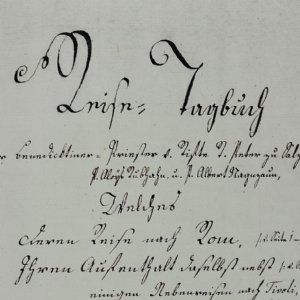 Reise= Tagbuch
r benedictiner= Priester v. Stifte S. Peter zu Salz
P. Aloys Stubhahn, u. P. Albert Nagnzaun,
Welches
deren Reise nach Rom,
Ihren Aufenthalt daselbst nebst
einigen Nebenreisen nach Tivoli,